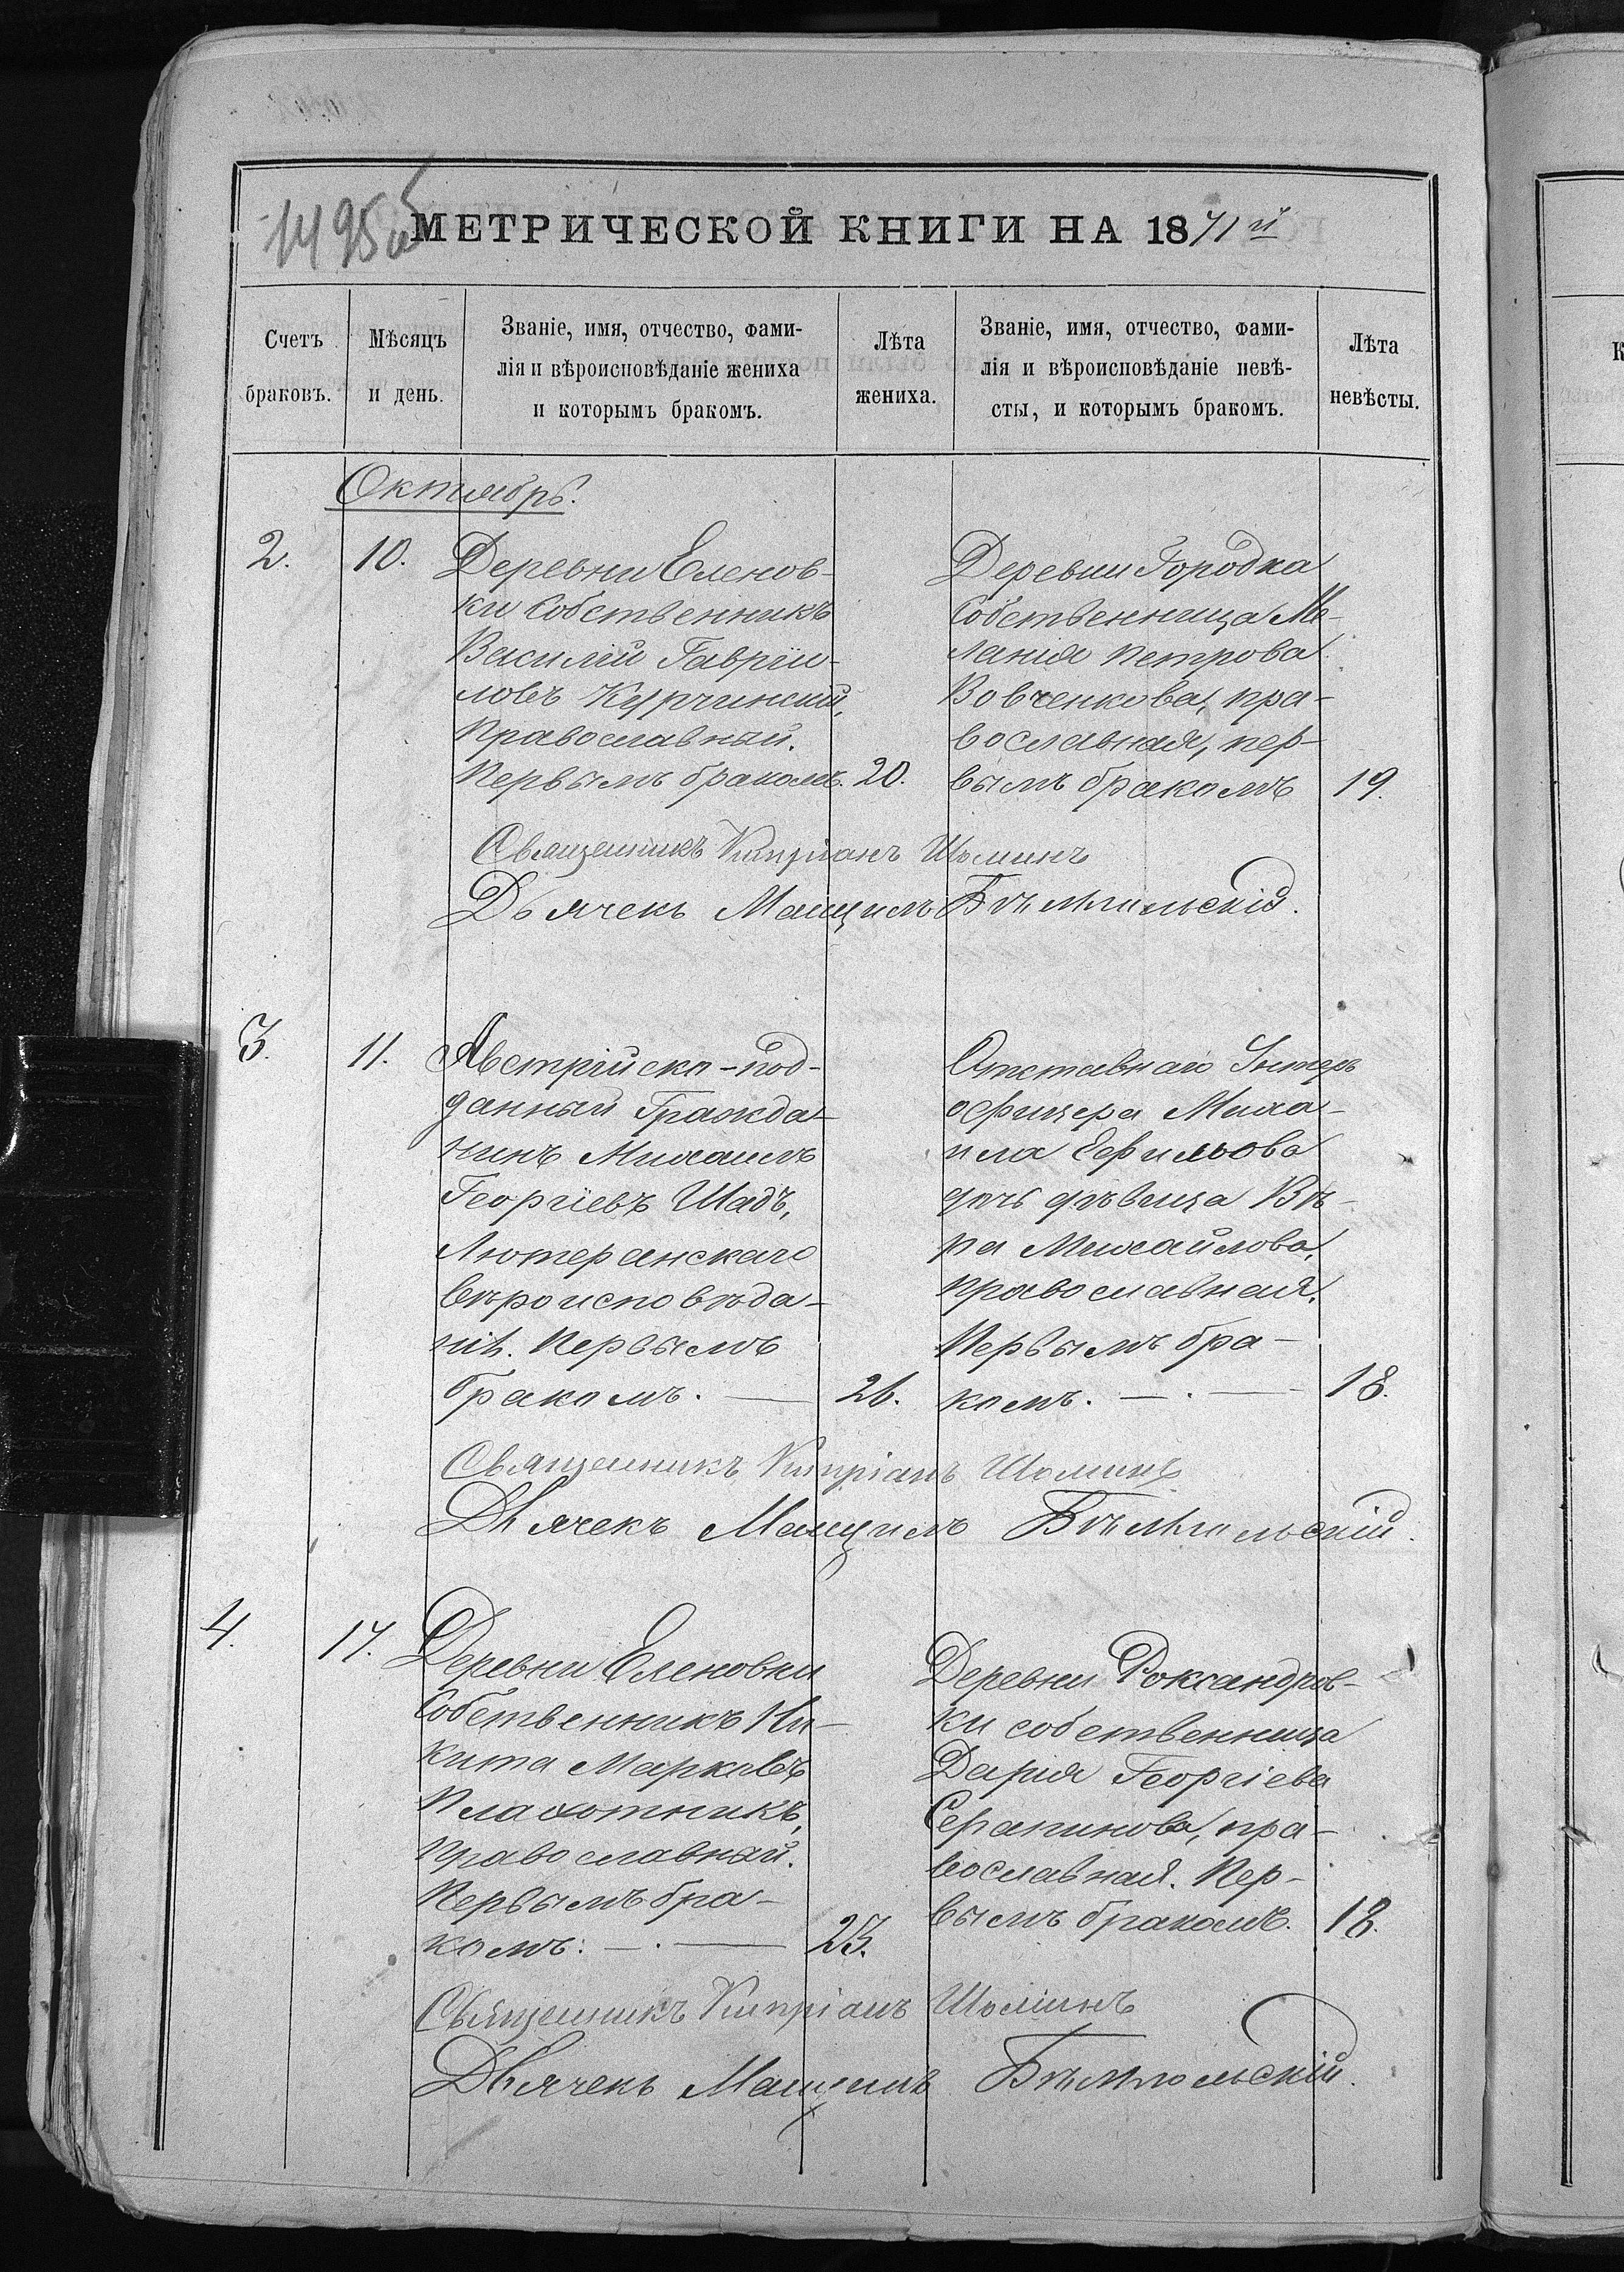 1495 об
МЕТРИЧЕСКОЙ КНИГИ НА 1871й
Счетъ браковъ.
Мѣсяцъ и день.
Званіе, имя, отчество, фами-
лія и вѣроисповѣданіе жениха
и которымъ бракомъ.
Лѣта жениха.
Званіе, имя, отчество, фами-
лія и вѣроисповѣданіе невѣ-
сты, и которымъ бракомъ.
Лѣта невѣсты.
Октябрь.
2.
10.
Деревни Еленов-
ки собственникъ
Василій Гаврıи-
ловъ Курчинский,
Православный.
Первымъ бракомъ.
20.
Деревни Городка
собственница Ме-
ланія Петрова
Вовченкова, пра-
вославная, пер-
вымъ бракомъ
19.
Священникъ Кипріанъ Шоминъ
Дьячекъ Бѣльчıльскій.
3.
11.
Австрійско-под-
данный Гражда-
нинъ Михаилъ
Георгіевъ Шадъ,
Лютеранскаго
вѣроисповѣда-
нія. Первымъ
бракомъ.
26.
Отставнаго Унтеръ
офицера Миха-
ила Ефимова
дочь дѣвица Вѣ-
ра Михайлова,
православная.
Первымъ бра-
комъ.
18.
Священникъ Кипріанъ Шоминъ
Дьячекъ
4.
17.
Деревни Еленовки
собственникъ Ни-
кита Марковъ
Плахотникъ,
православный.
Первымъ бра-
комъ:
23.
Деревни Роксандров-
ки собственница
Дарія Георгіева
Серапинова, пра-
вославная. Пер-
вымъ бракомъ.
18.
Священникъ Кипріанъ Шоминъ
Дьячекъ